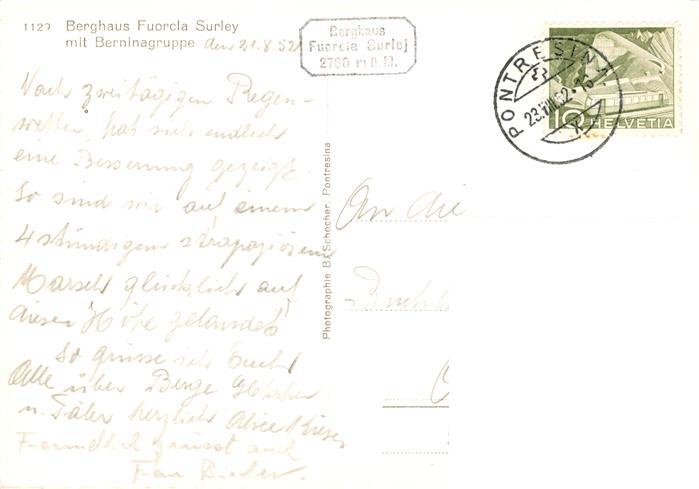 1129 Berghaus Fuorcla Surley
mit Berninagruppe den 21.8.52
Berghaus
Fuorcla Surlej
2760 m ü. M.
PONTRESINA
23.VIII.52.-16
10 HELVETIA
Nach zweitägigem Regen-
wetter, hat sich endlich
eine Besserung gezeigt.
So sind wir auf einem
4 stündigem strapaziösem
Marsch glücklich auf
dieser Höhe gelandet!
So grüsse ich Euch
Alle über Berge Gletscher
u. Täler herzlich Alice
Freundlich grüsst auch
Frau
Photographie B. Schocher, Pontresina
An die